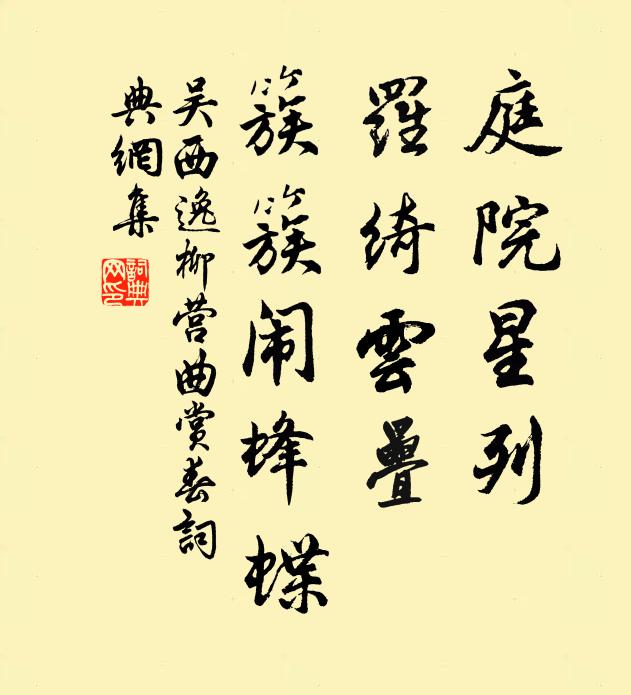 庭院星列
羅綺雲疊
簇簇闹蜂蝶
吴西逸柳营曲赏春詞
典網集
詞典网印